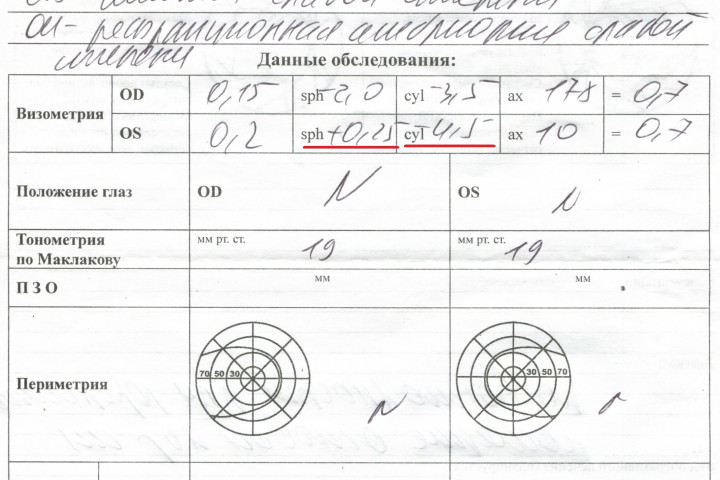 OU - рефракционная амблиопия слабой
степени
Данные обследования:
Визометрия OD 0,15 sph -2,0 cyl -3,5 ax 178 = 0,7
OS 0,2 sph +0,25 cyl -4,5 ax 10 = 0,7
Положение глаз OD N OS N
Тонометрия
по Маклакову мм рт. ст. 19 мм рт. ст. 19
П З О мм мм
Периметрия 70 50 30 N 30 50 70